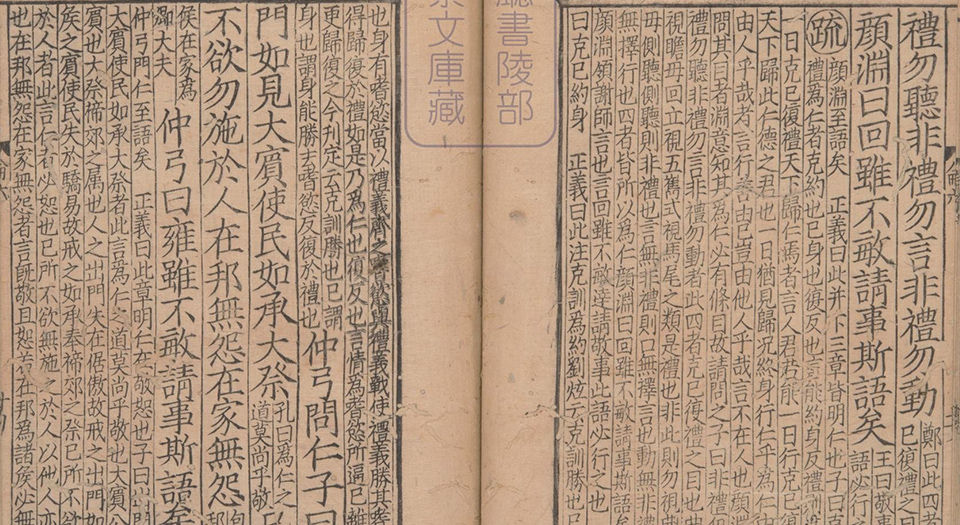 禮勿聽非禮勿言非禮勿動
鄭曰此四者
已復禮之
顏淵曰回雖不敏請事斯語矣
王曰敬
語必行
疏
顏淵至語矣 正義曰此并下三章皆明仁也子曰
禮為仁者克約也已身也復反也言能約身反禮
一日克已復禮天下歸仁焉者言人君若能一日行克已
天下歸此仁德之君也一日猶見歸况終身行仁乎為仁
由人乎哉者言行善由已豈由他人乎哉言不在人也顏
問其目者淵意知其為仁必有條目故請問之子曰非禮
禮勿聽非禮勿言非禮勿動者此四者克已復禮之目也曲
視瞻毋回立視五雟式視馬尾之類是禮也非此則勿視
毋側聽側聽則非禮也言無非禮則口無擇言也動無非
無擇行也四者皆所以為仁顏淵曰回雖不敏請事斯語
顏淵領謝師言也言回雖不敏達請敬事此語必行之也
曰克已約身 正義曰此注克訓為約劉炫云克訓勝也
廳書陵部
文庫藏
也身有嗜慾當以禮義齊之嗜慾與禮義戰使禮義勝其嗜
得歸復於禮如是乃為仁也復反也言情為嗜慾所逼已離
更歸復之今刊定云克訓勝也已謂
身也謂身能勝去嗜慾反復於禮也
仲弓問仁子曰
門如見大賓使民如承大祭
孔曰為仁之
道莫尚乎敬
不欲勿施於人在邦無怨在家無怨
侯在家為
卿大夫
仲弓曰雍雖不敏請事斯語矣
仲弓門仁至語矣 正義曰此章明仁在敬恕也子曰出門
大賓使民如承大祭者此言為仁之道莫尚乎敬也大賓公
賓也大祭禘郊之属也人之出門失在倨傲故戒之出門如
矦之賓使民失於驕易故戒之如承奉禘郊之祭已所不欲
於人者此言仁者以恕也已所不欲無施之於人以他人亦
也在邦無怨在家無怨者言旣敬且恕若在邦為諸矦必